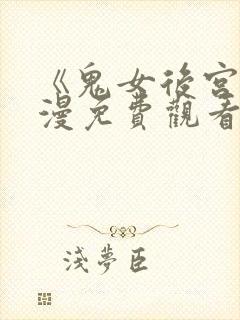 《鬼女後宮
漫免費觀看
淺夢臣